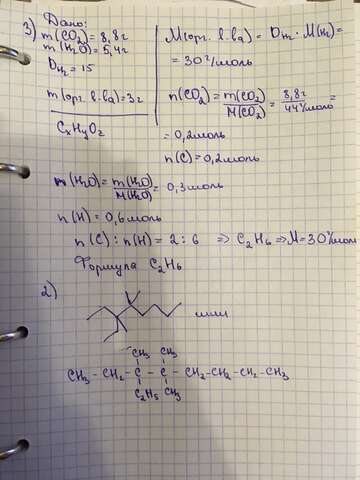 3) Дано:
m(CO₂) = 8,8г
m(H₂O) = 5,4г
D_H₂ = 15
m(орг. в-ва) = 3г
CxHyOz
M(орг. в-ва) = D_H₂ · M(H₂) =
= 30 г/моль
n(CO₂) = m(CO₂)/M(CO₂) = 8,8г/44г/моль =
= 0,2моль
n(C) = 0,2моль
n(H₂O) = m(H₂O)/M(H₂O) = 0,3моль
n(H) = 0,6моль
n(C) : n(H) = 2 : 6 ⇒ C₂H₆ ⇒ M = 30г/моль
Формула C₂H₆
2)
или
CH₃ CH₃
CH₃ - CH₂ - C - C - CH₂ - CH₂ - CH₂ - CH₃
C₂H₅ CH₃